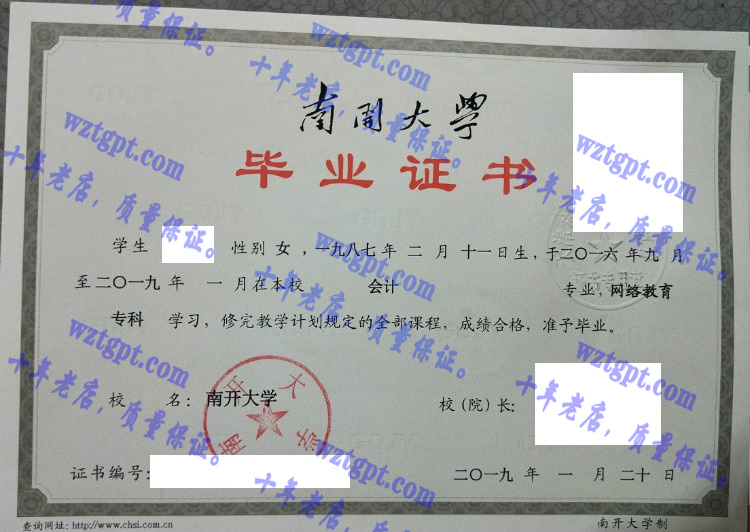 南開大學
毕业证书
学生 性别 女 ，一九八七 年 二 月 十一 日生，于二〇一六 年 九 月
至二〇一九 年 一 月在本校 会计 专业，网络教育
专科 学习，修完教学计划规定的全部课程，成绩合格，准予毕业。
校 名：南开大学 校（院）长：
南开大学
证书编号：
二〇一九 年 一 月 二十 日
查询网址：http://www.chsi.com.cn
南开大学制
质量保证。
wztgpt.com
十年老店，质量保证。
wztgpt.com
十年老店，质量保证。
wztgpt.com
十年老店，质量保证。
wztgpt.com
十年老店，质量保证。
wztgpt.com
十年老店，质量保证。
wztgpt.com
十年老店，质量保证。
wztgpt.com
十年老店，质量保证。
wztgpt.com
十年老店，质量保证。